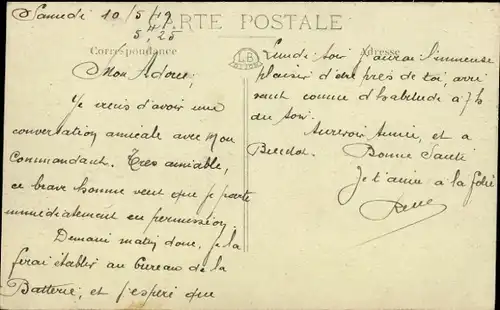 Samedi 10/5/19
5h25
CARTE POSTALE
Correspondance
LB
Adresse
Mon Adorée,
Je viens d'avoir une
conversation amicale avec mon
Commandant. Très aimable,
ce brave homme veut que je parte
immédiatement en permission.
Demain matin donc, je la
ferai établir au bureau de la
Batterie, et j'espère que
Lundi soir j'aurai l'immense
plaisir d'être près de toi, arri
vant comme d'habitude à 7h
du soir.
Aurevoir Aimée, et à
Bientot. Bonne Santé
Je t'aime à la folie